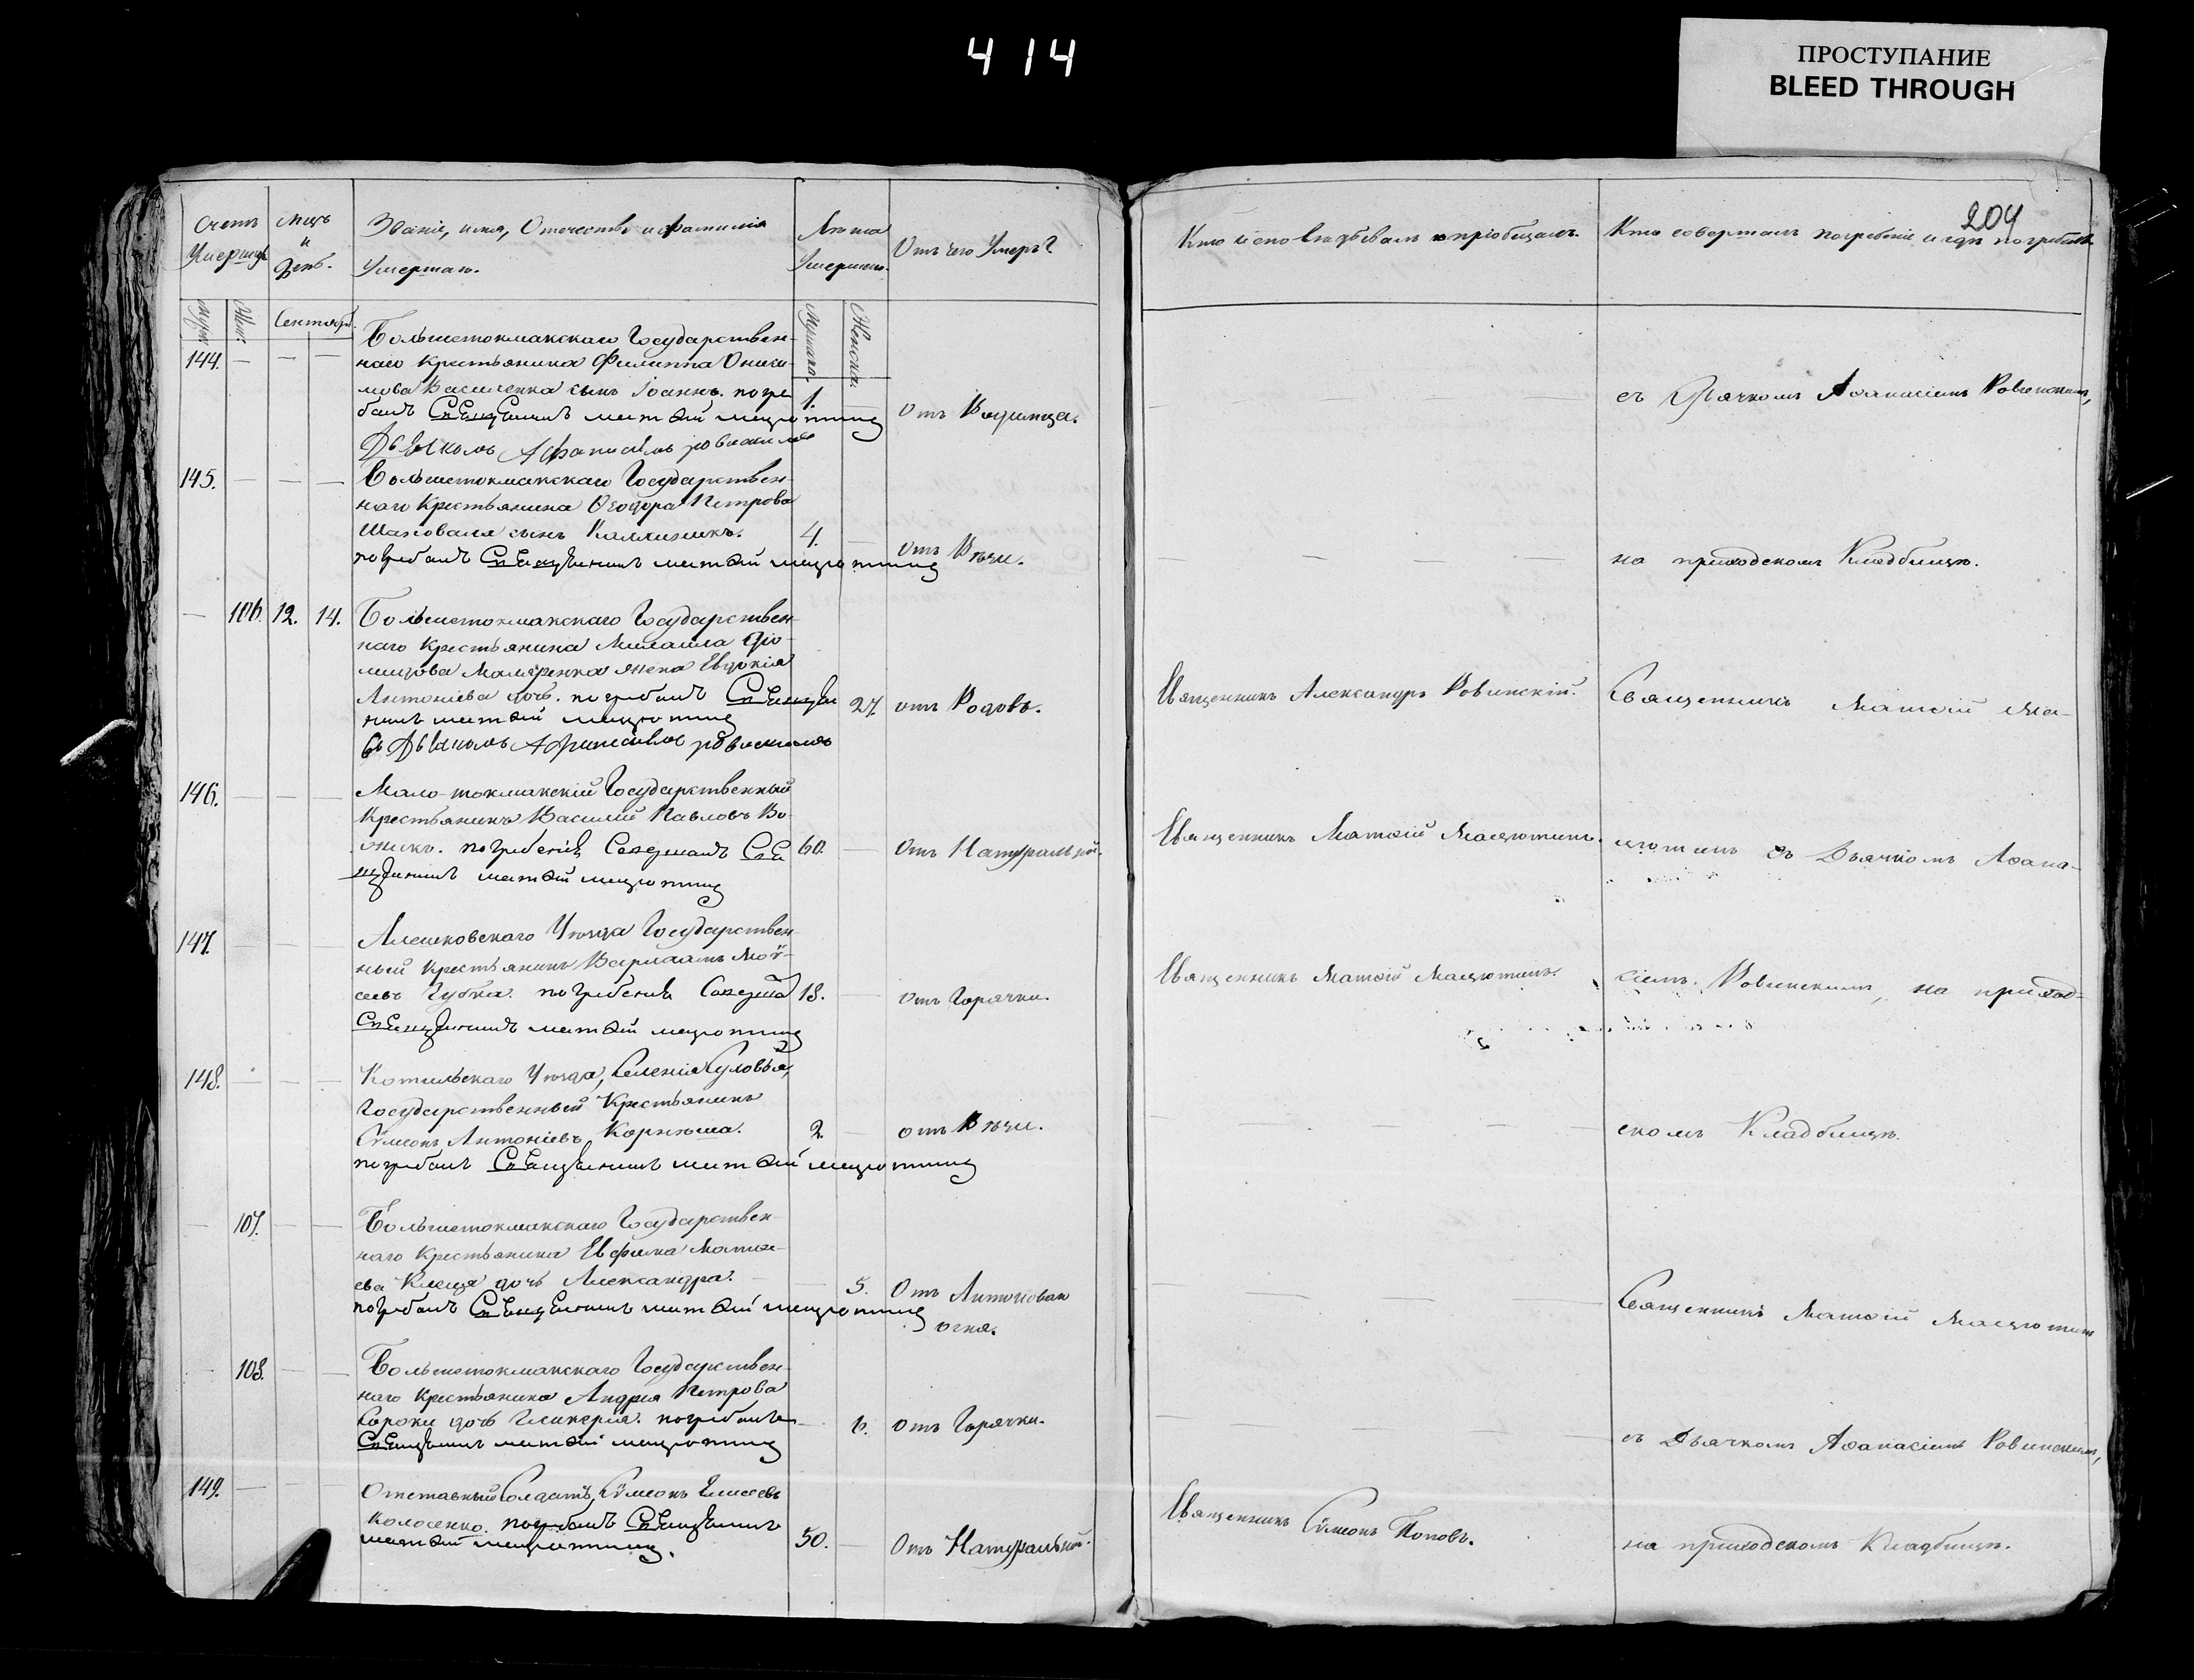 414
ПРОСТУПАНИЕ
BLEED THROUGH
204
Счетъ Умершихъ
Мцъ и День.
Званіе, имя, Отечество и фамилія
Умершаго.
Лѣта Умершаго.
Отъ чего Умеръ?
Кто исповѣдывалъ и пріобщалъ.
Кто совершалъ погребеніе и гдѣ погребенъ
Муж. Жен. Сентябр. Мужска. Женска.
144. Большетокмакскаго Государствен-
наго Крестьянина Филиппа Оники-
мова Василенка сынъ Іоаннъ. погре
балъ Священникъ матѳій мацютинъ
Дьячкомъ Афанасіемъ ровинскимъ
1. Отъ Родимца.
съ Дьячкомъ Аѳанасіемъ Ровинскимъ,
145. Большетокмакскаго Государствен-
наго Крестьянина Ѳеодора Петрова
Шаповала сынъ Каллиникъ.
погребалъ Священникъ матѳій мацютинъ
4. Отъ Кори.
на приходскомъ Кладбищѣ.
106. 12. 14. Большетокмакскаго Государствен-
наго Крестьянина Михаила Діо-
мидова Маляренка жена Евдокія
Антоніева дочь. погребалъ Священ
никъ матѳій мацютинъ
съ Дьячкомъ Афанасіемъ ровинскимъ
27. отъ Родовъ.
Священникъ Александръ Ровинскій.
Священникъ Матѳій Ма-
146. Мало-токмакскій Государственный
Крестьянинъ Василій Павловъ Во-
погребеніе Совершалъ Свя
щенникъ матѳій мацютинъ
60. Отъ Натуральной.
Священникъ Матѳій Мацютинъ.
цютинъ съ Дьячкомъ Аѳана-
147. Алешковскаго Уѣзда Государствен-
ный Крестьянинъ Варлаамъ Моѵ-
сеевъ Губка. погребеніе Соверша
Священникъ матѳій мацютинъ
18. Отъ Горячки.
Священникъ Матѳій Мацютинъ.
сіемъ Ровинскимъ, на приход-
148. Уѣзда, Селенія
Государственный Крестьянинъ
Сѵмеонъ Антоніевъ
погребалъ Священникъ матѳій мацютинъ
2. отъ Кори.
скомъ Кладбищѣ.
107. Большетокмакскаго Государствен-
наго Крестьянина Евфима Матѳе-
ева Клеща дочь Александра.
погребалъ Священникъ матѳій мацютинъ
5. Отъ Антонова
огня.
Священникъ Матѳій Мацютинъ
108. Большетокмакскаго Государствен-
наго Крестьянина Андрея Петрова
Сороки дочь Гликерія. погребалъ
Священникъ матѳій мацютинъ
6. отъ Горячки.
съ Дьячкомъ Аѳанасіемъ Ровинскимъ,
149. Отставный Солдатъ, Сѵмеонъ Елисеевъ
Колосенко. погребалъ Священникъ
матѳій мацютинъ.
50. Отъ Натуральной.
Священникъ Сѵмеонъ Поповъ.
на приходскомъ Кладбищѣ.